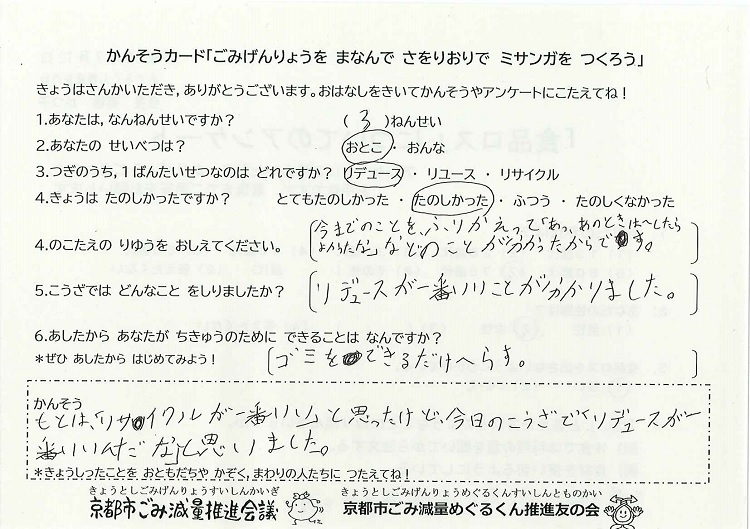 かんそうカード「ごみげんりょうを まなんで さをりおりで ミサンガを つくろう」
きょうはさんかいただき、ありがとうございます。おはなしをきいてかんそうやアンケートにこたえてね！
1.あなたは、なんねんせいですか？ (3)ねんせい
2.あなたの せいべつは？ おとこ ・ おんな
3.つぎのうち、１ばんたいせつなのは どれですか？ リデュース ・ リユース ・ リサイクル
4.きょうは たのしかったですか？ とてもたのしかった ・ たのしかった ・ ふつう ・ たのしくなかった
4.のこたえの りゆうを おしえてください。
今までのことを、ふりかえって「あっ、あのときは〜したら
よかったな」などのことが分かったからです。
5.こうざでは どんなこと をしりましたか？ リデュースが一番いいことが分かりました。
6.あしたから あなたが ちきゅうのために できることは なんですか？
*ぜひ あしたから はじめてみよう！ ゴミをできるだけへらす。
かんそう
もとは、「リサイクルが一番いい」と思ったけど、今日のこうざで「リデュースが一
番いいんだな」と思いました。
*きょうしったことを おともだちや かぞく、まわりの人たちに つたえてね！
きょうとしごみげんりょうすいしんかいぎ
京都市ごみ減量推進会議
きょうとしごみげんりょうめぐるくんすいしんとものかい
京都市ごみ減量めぐるくん推進友の会